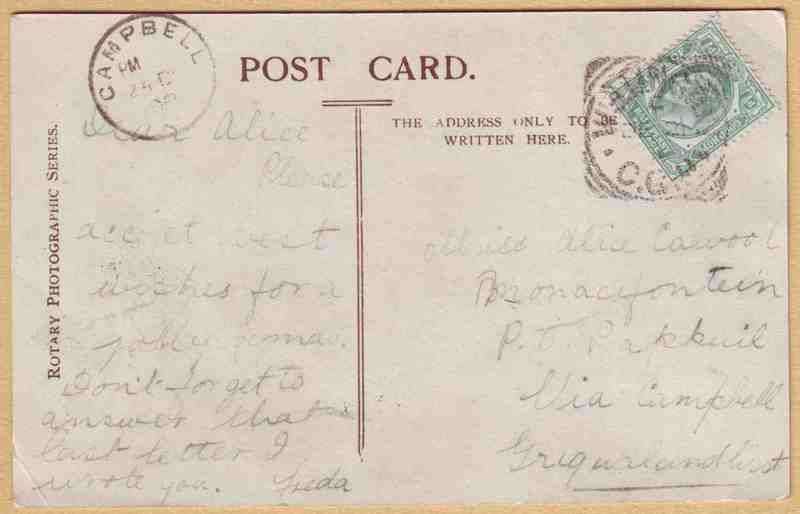 CAMPBELL
PM
POST CARD.
THE ADDRESS ONLY TO BE
WRITTEN HERE.
C.G.H.
ROTARY PHOTOGRAPHIC SERIES.
Dear Alice
Please
accept best
wishes for a
jolly Xmas.
Don't forget to
answer that
last letter I
wrote you. Freda
Miss Alice Cawood
P.O. Papkuil
Via Campbell
Griqualand West